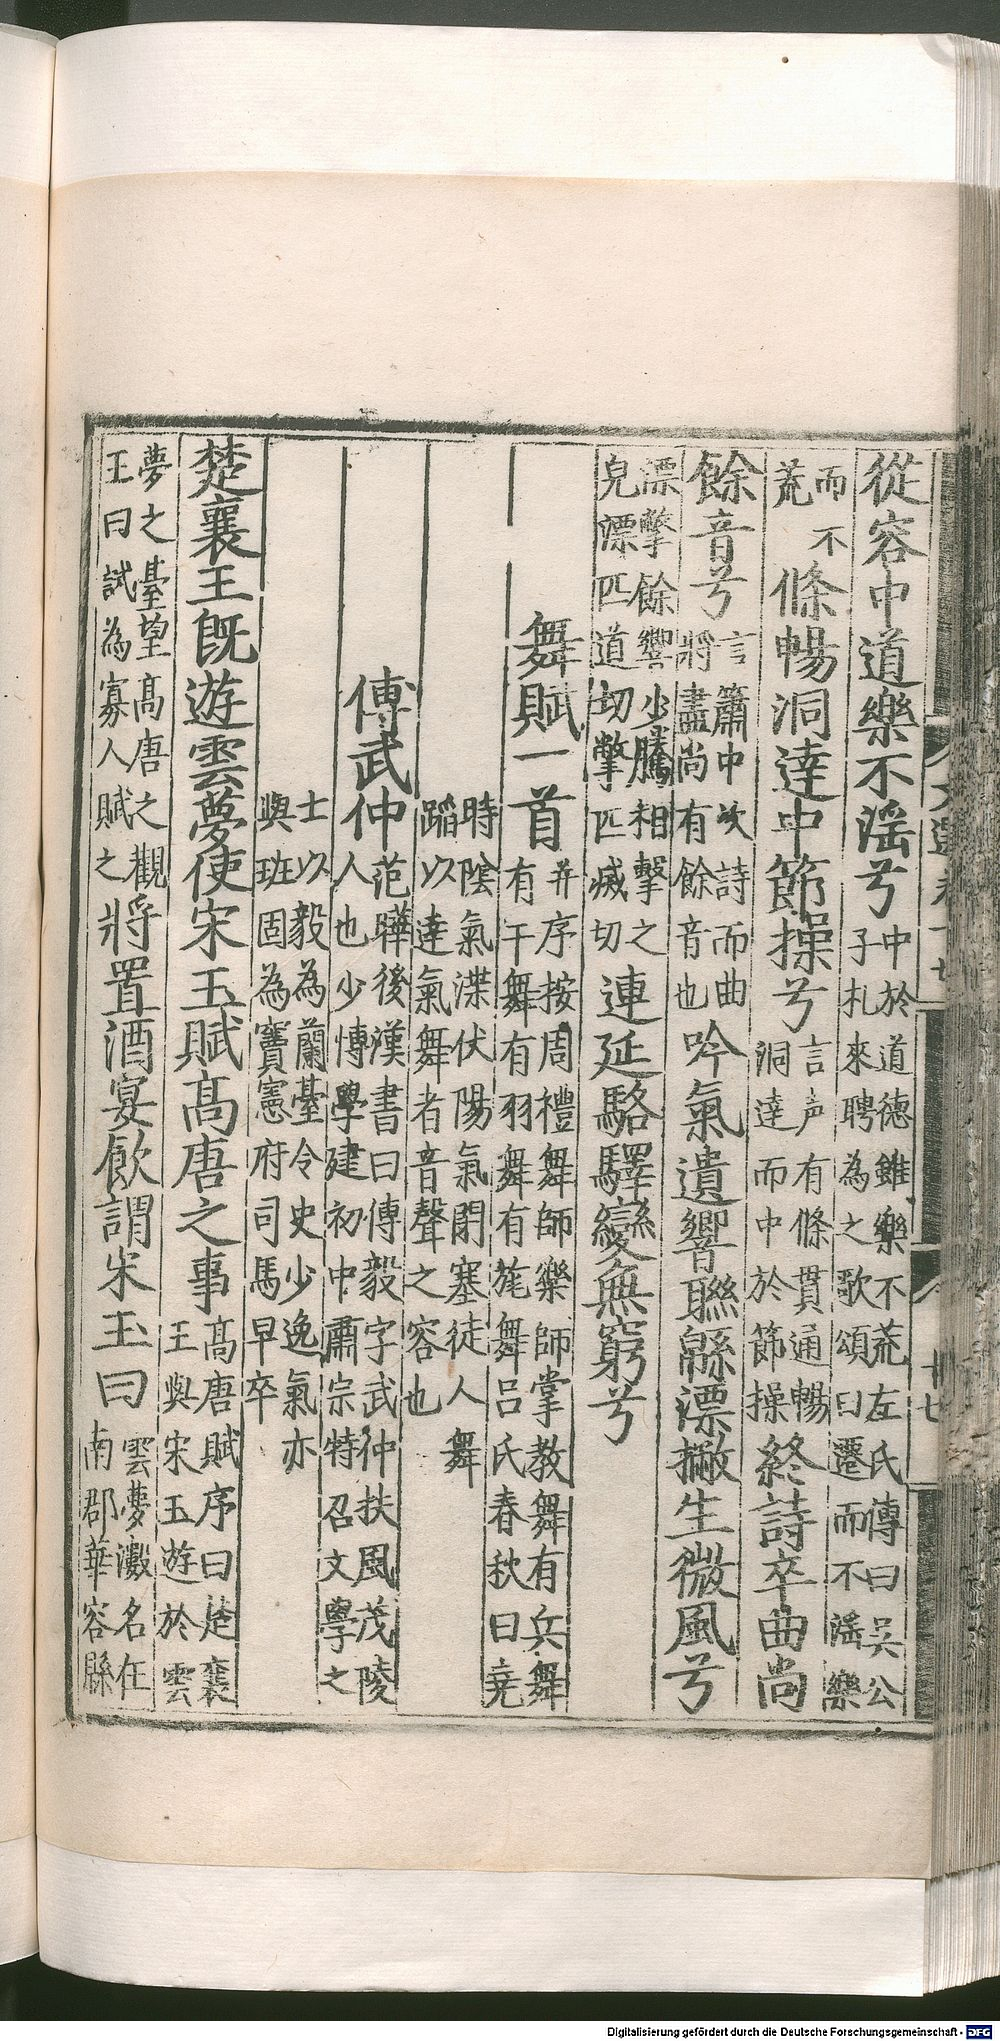 文選卷十七
廿七
從容中道樂不滛兮中於道德雖樂不荒左氏傳曰吳公子札來聘為之歌頌曰遷而不滛樂
而不荒條暢洞達中節操兮言声有條貫通暢洞達而中於節操終詩卒曲尚
餘音兮言簫中吹詩而曲將盡尚有餘音也吟氣遺響聯緜漂撇生微風兮
漂撆餘響少騰相擊之皃漂匹道切撆匹切連延駱驛變無窮兮
舞賦一首并序按周禮舞師樂師掌教舞有兵舞有干舞有羽舞有旄舞呂氏春秋曰堯
時陰氣伏陽氣閇塞徒人舞蹈以達氣舞者音聲之容也
傅武仲范曄後漢書曰傅毅字武仲扶風茂陵人也少慱學建初中肅宗特召文學之
士以毅為蘭臺令史少逸氣亦與班固為竇憲府司馬早卒
楚襄王既遊雲夢使宋玉賦髙唐之事髙唐賦序曰楚襄王與宋玉遊於雲
夢之臺望髙唐之觀王曰試為寡人賦之將置酒宴飲謂宋玉曰雲夢藪名在南郡華容縣
Digitalisierung gefördert durch die Deutsche Forschungsgemeinschaft - DFG